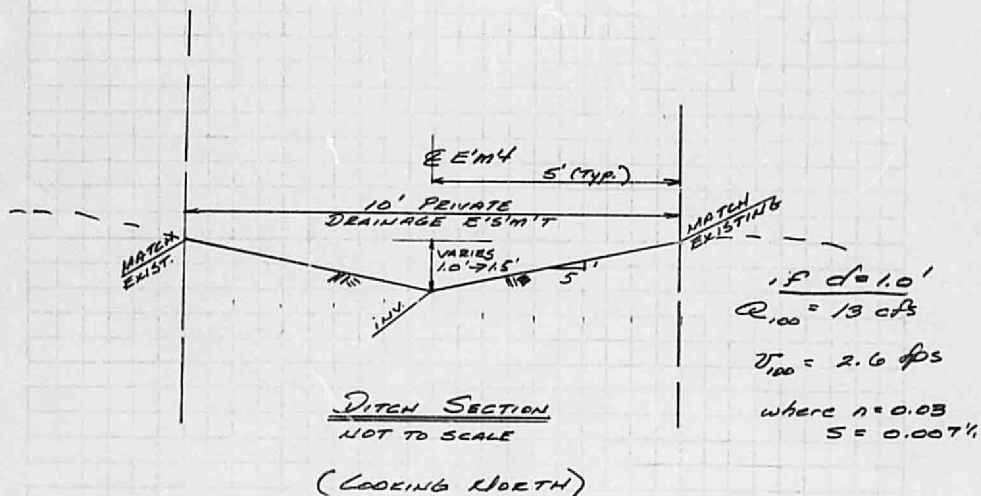 ℄ E'm't
5' (TYP.)
10' PRIVATE
DRAINAGE E'S'M'T
MATCH
EXIST.
VARIES
1.0'→1.5'
MATCH
EXISTING
1
5
INV.
if d=1.0'
Q100 = 13 cfs
V100 = 2.6 fps
where n=0.03
S = 0.007'/,
DITCH SECTION
NOT TO SCALE
(LOOKING NORTH)